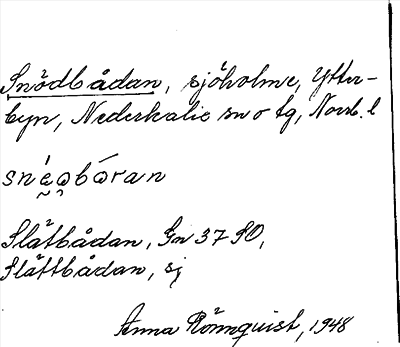 Snödbådan, sjöholme, Ytter-
byn, Nederkalix sn o tg, Norrb. l
snéəbǻran
Slätbådan, Gn 37 SO,
Slättbådan, sj
Anna Rönnquist, 1948